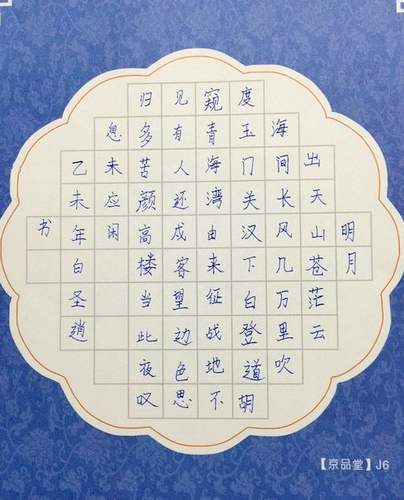 明月
出天山苍茫云
海间长风几万里吹
度玉门关汉下白登道胡
窥青海湾由来征战地不
见有人还戍客望边色思
归多苦颜高楼当此夜叹
息未应闲
乙未年白圣逍
书
【京品堂】J6